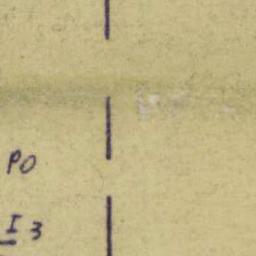 PO
I 3